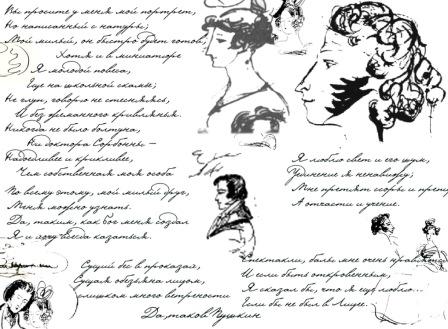 Вы просите у меня мой портрет,
Но написанный с натуры;
Мой милый, он быстро будет готов,
Хотя и в миниатюре
Я молодой повеса,
Еще на школьной скамье;
Не глуп, говорю не стесняясь,
И без жеманного кривлянья.
Никогда не было болтуна,
Ни доктора Сорбонны —
Надоедливее и крикливее,
Чем собственная моя особа
По всему этому, мой милый друг,
Меня можно узнать.
Да, таким, как бог меня создал
Я и хочу всегда казаться.
Сущий бес в проказах,
Сущая обезьяна лицом,
слишком много ветрености
Да, таков Пушкин
Я люблю свет и его шум,
Уединение я ненавижу;
Мне претят ссоры и
А отчасти и учение.
Спектакли, балы мне очень
И если быть откровенным,
Я сказал бы, что я еще люблю...
Если бы не был в Лицее.